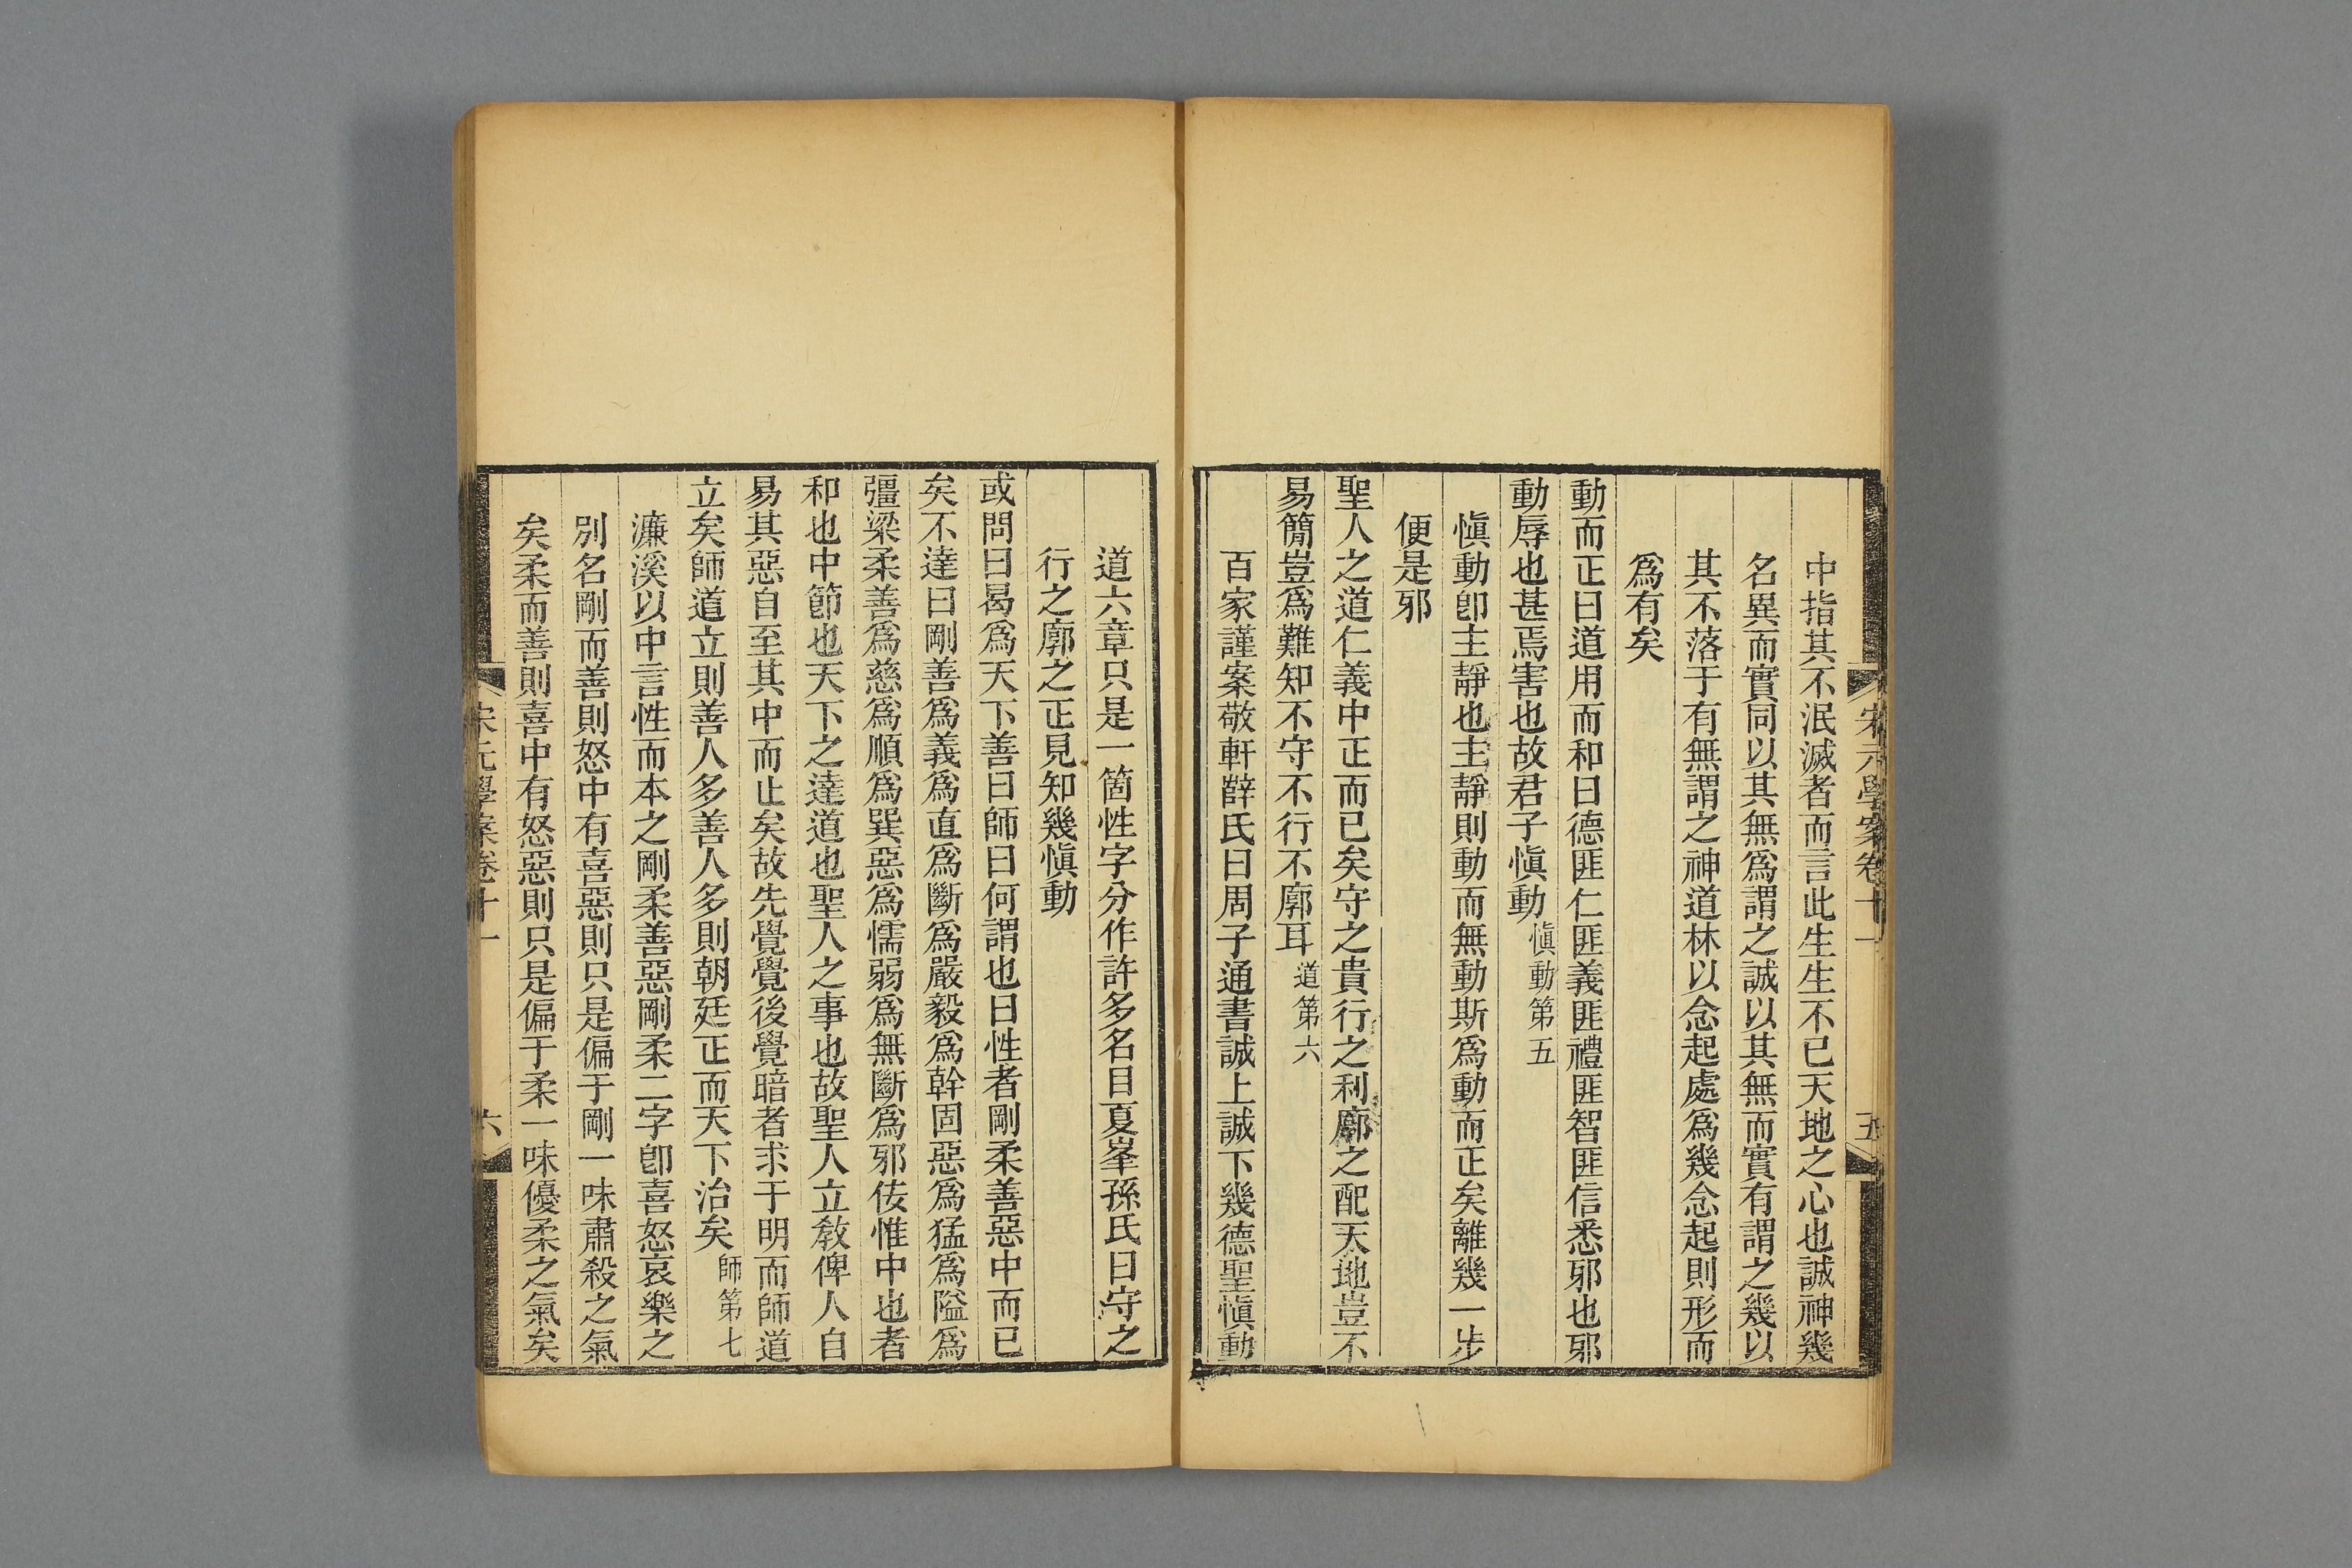 宋元學案卷十一
五
中指其不泯滅者而言此生生不已天地之心也誠神幾
名異而實同以其無爲謂之誠以其無而實有謂之幾以
其不落于有無謂之神道林以念起處爲幾念起則形而
爲有矣
動而正曰道用而和曰德匪仁匪義匪禮匪智匪信悉邪也邪
動辱也甚焉害也故君子愼動愼動第五
愼動卽主靜也主靜則動而無動斯爲動而正矣離幾一步
便是邪
聖人之道仁義中正而已矣守之貴行之利廓之配天地豈不
易簡豈爲難知不守不行不廓耳道第六
百家謹案敬軒薛氏曰周子通書誠上誠下幾德聖愼動
道六章只是一箇性字分作許多名目夏峯孫氏曰守之
行之廓之正見知幾愼動
或問曰曷爲天下善曰師曰何謂也曰性者剛柔善惡中而已
矣不達曰剛善爲義爲直爲斷爲嚴毅爲幹固惡爲猛爲隘爲
彊梁柔善爲慈爲順爲巽惡爲懦弱爲無斷爲邪佞惟中也者
和也中節也天下之達道也聖人之事也故聖人立敎俾人自
易其惡自至其中而止矣故先覺覺後覺暗者求于明而師道
立矣師道立則善人多善人多則朝廷正而天下治矣師第七
濂溪以中言性而本之剛柔善惡剛柔二字卽喜怒哀樂之
別名剛而善則怒中有喜惡則只是偏于剛一味肅殺之氣
矣柔而善則喜中有怒惡則只是偏于柔一味優柔之氣矣
宋元學案卷十一
六